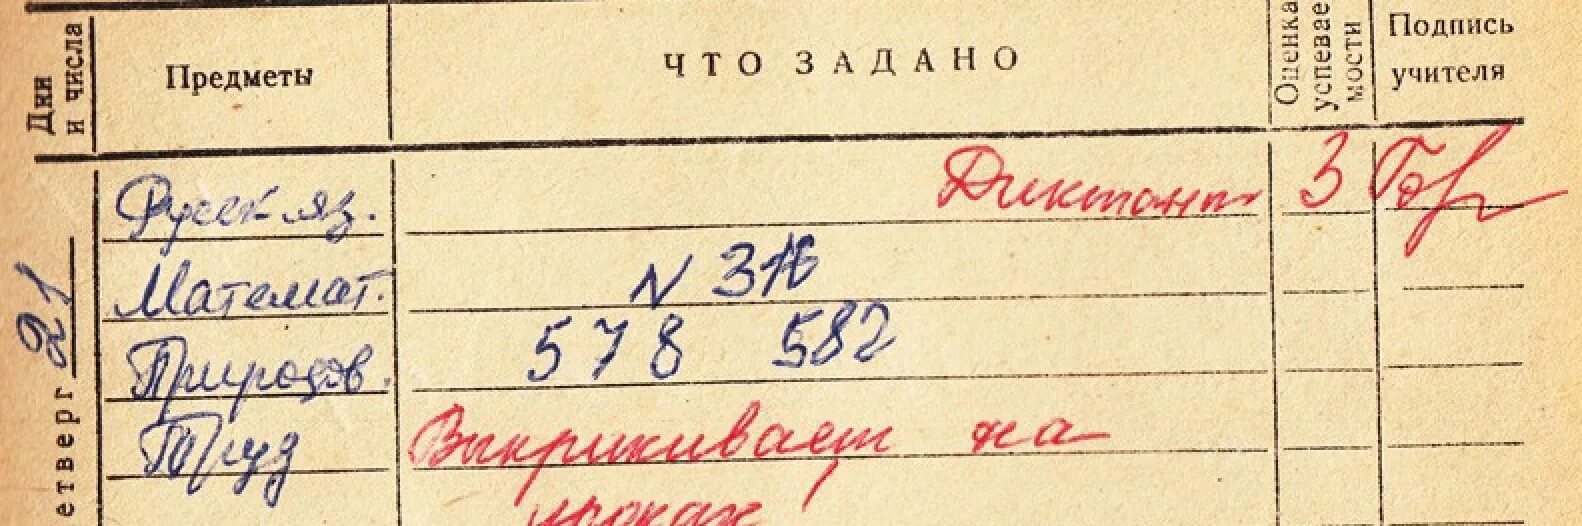 Дни и числа Предметы ЧТО ЗАДАНО Оценка успеваемости Подпись учителя
Русск яз. Диктант 3
21 Математ. N 316
Природов. 578 582
етверг Труд Выкрикивает на
уроках!